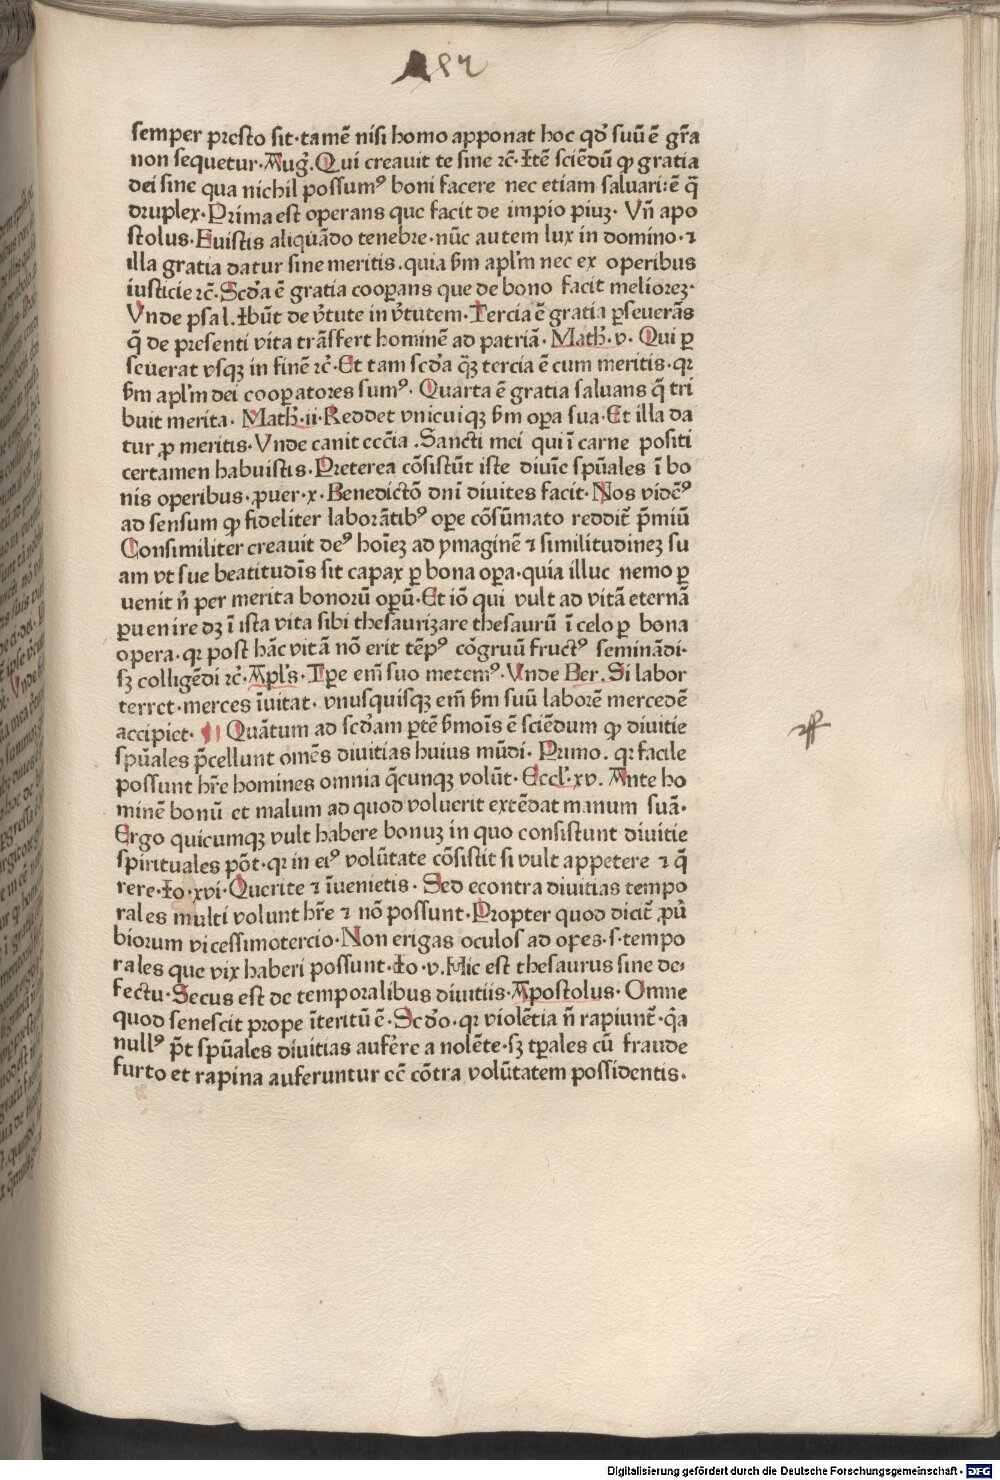 182
semper presto sit·tamē nisi homo apponat hoc qď suū ē gr̄a
non sequetur·Aug᷒.Qui creauit te sine ⁊c̄·Itē sciēdū ꝙ gratia
dei sine qua nichil possumꝰ boni facere nec etiam saluari:ē q̄
druplex·Prima est operans que facit de impio piuꝫ· Vn̄ apo
stolus·Fuistis aliquādo tenebre·nūc autem lux in domino·⁊
illa gratia datur sine meritis.quia ẜm apl'm nec ex operibus
iusticie ⁊c̄·Scďa ē gratia cooꝑans que de bono facit melioreꝫ·
Vnde psal.Ibūt de v̓tute in v̓tutem·Tercia ē gratia ꝑseuerās
q̄ de presenti vita trāsfert hominē ad patriā· Math̓·v· Qui ꝑ
seuerat vsqꝫ in finē ⁊c̄·Et tam scďa q̄ꝫ tercia ē cum meritis·qꝛ
ẜm apl'm dei cooꝑatores sumꝰ· Quarta ē gratia saluans q̄ tri
buit merita· Math̓·ii·Reddet vnicuiqꝫ ẜm oꝑa sua·Et illa da
tur ꝓ meritis·Vnde canit eccīa .Sancti mei qui ī carne positi
certamen habuistis·Preterea cōsistūt iste diuīe spūales ī bo
nis operibus·ꝓuer·x·Benedictō dnī diuites facit·Nos vidēꝰ
ad sensum ꝙ fideliter laborātibꝰ oꝑe cōsūmato reddit̄ p̄miū
Consimiliter creauit deꝰ hoīeꝫ ad ymaginē ⁊ similitudineꝫ su
am vt sue beatitudīs sit capax ꝑ bona oꝑa·quia illuc nemo ꝑ
uenit n̄ per merita bonorū oꝑū·Et iō qui vult ad vitā eternā
ꝑuenire dꝫ ī ista vita sibi thesaurizare thesaurū ī celo ꝑ bona
opera·qꝛ post hāc vitā nō erit tēpꝰ cōgruū fructꝰ seminādi·
sꝫ colligēdi ⁊c̄·Apl's·Tpe em̄ suo metemꝰ·Vnde Ber.Si labor
terret·merces īuitat· vnusquisqꝫ em̄ ẜm suū laborē mercedē
accipiet· ¶ Quātum ad scďam ptē ẜmoīs ē sciēdum ꝙ diuitie
spūales p̄cellunt omēs diuitias huius mūdi· Primo. qꝛ facile
possunt hr̄e homines omnia q̄cunqꝫ volūt· Eccl'·xv. Ante ho
minē bonū et malum ad quod voluerit extēdat manum suā·
Ergo quicumqꝫ vult habere bonuꝫ in quo consistunt diuitie
spirituales pōt·qꝛ in eiꝰ volūtate cōsistit si vult appetere ⁊ q̄
rere·Io·xvi·Querite ⁊ īuenietis· Sed econtra diuitias tempo
rales multi volunt hr̄e ⁊ nō possunt·Propter quod dicit̄ ꝓū
biorum vicessimotercio·Non erigas oculos ad opes·s·tempo
rales que vix haberi possunt·Io·v.Hic est thesaurus sine de⸗
fectu·Secus est de temporalibus diuitiis·Apostolus· Omne
quod senescit prope īteritū ē·Scďo·qꝛ violētia n̄ rapiunt̄·q̄a
nullꝰ p̄t spūales diuitias aufēre a nolēte·sꝫ tꝑales cū fraude
furto et rapina auferuntur ec̄ cōtra volūtatem possidentis·
Digitalisierung gefördert durch die Deutsche Forschungsgemeinschaft - DFG